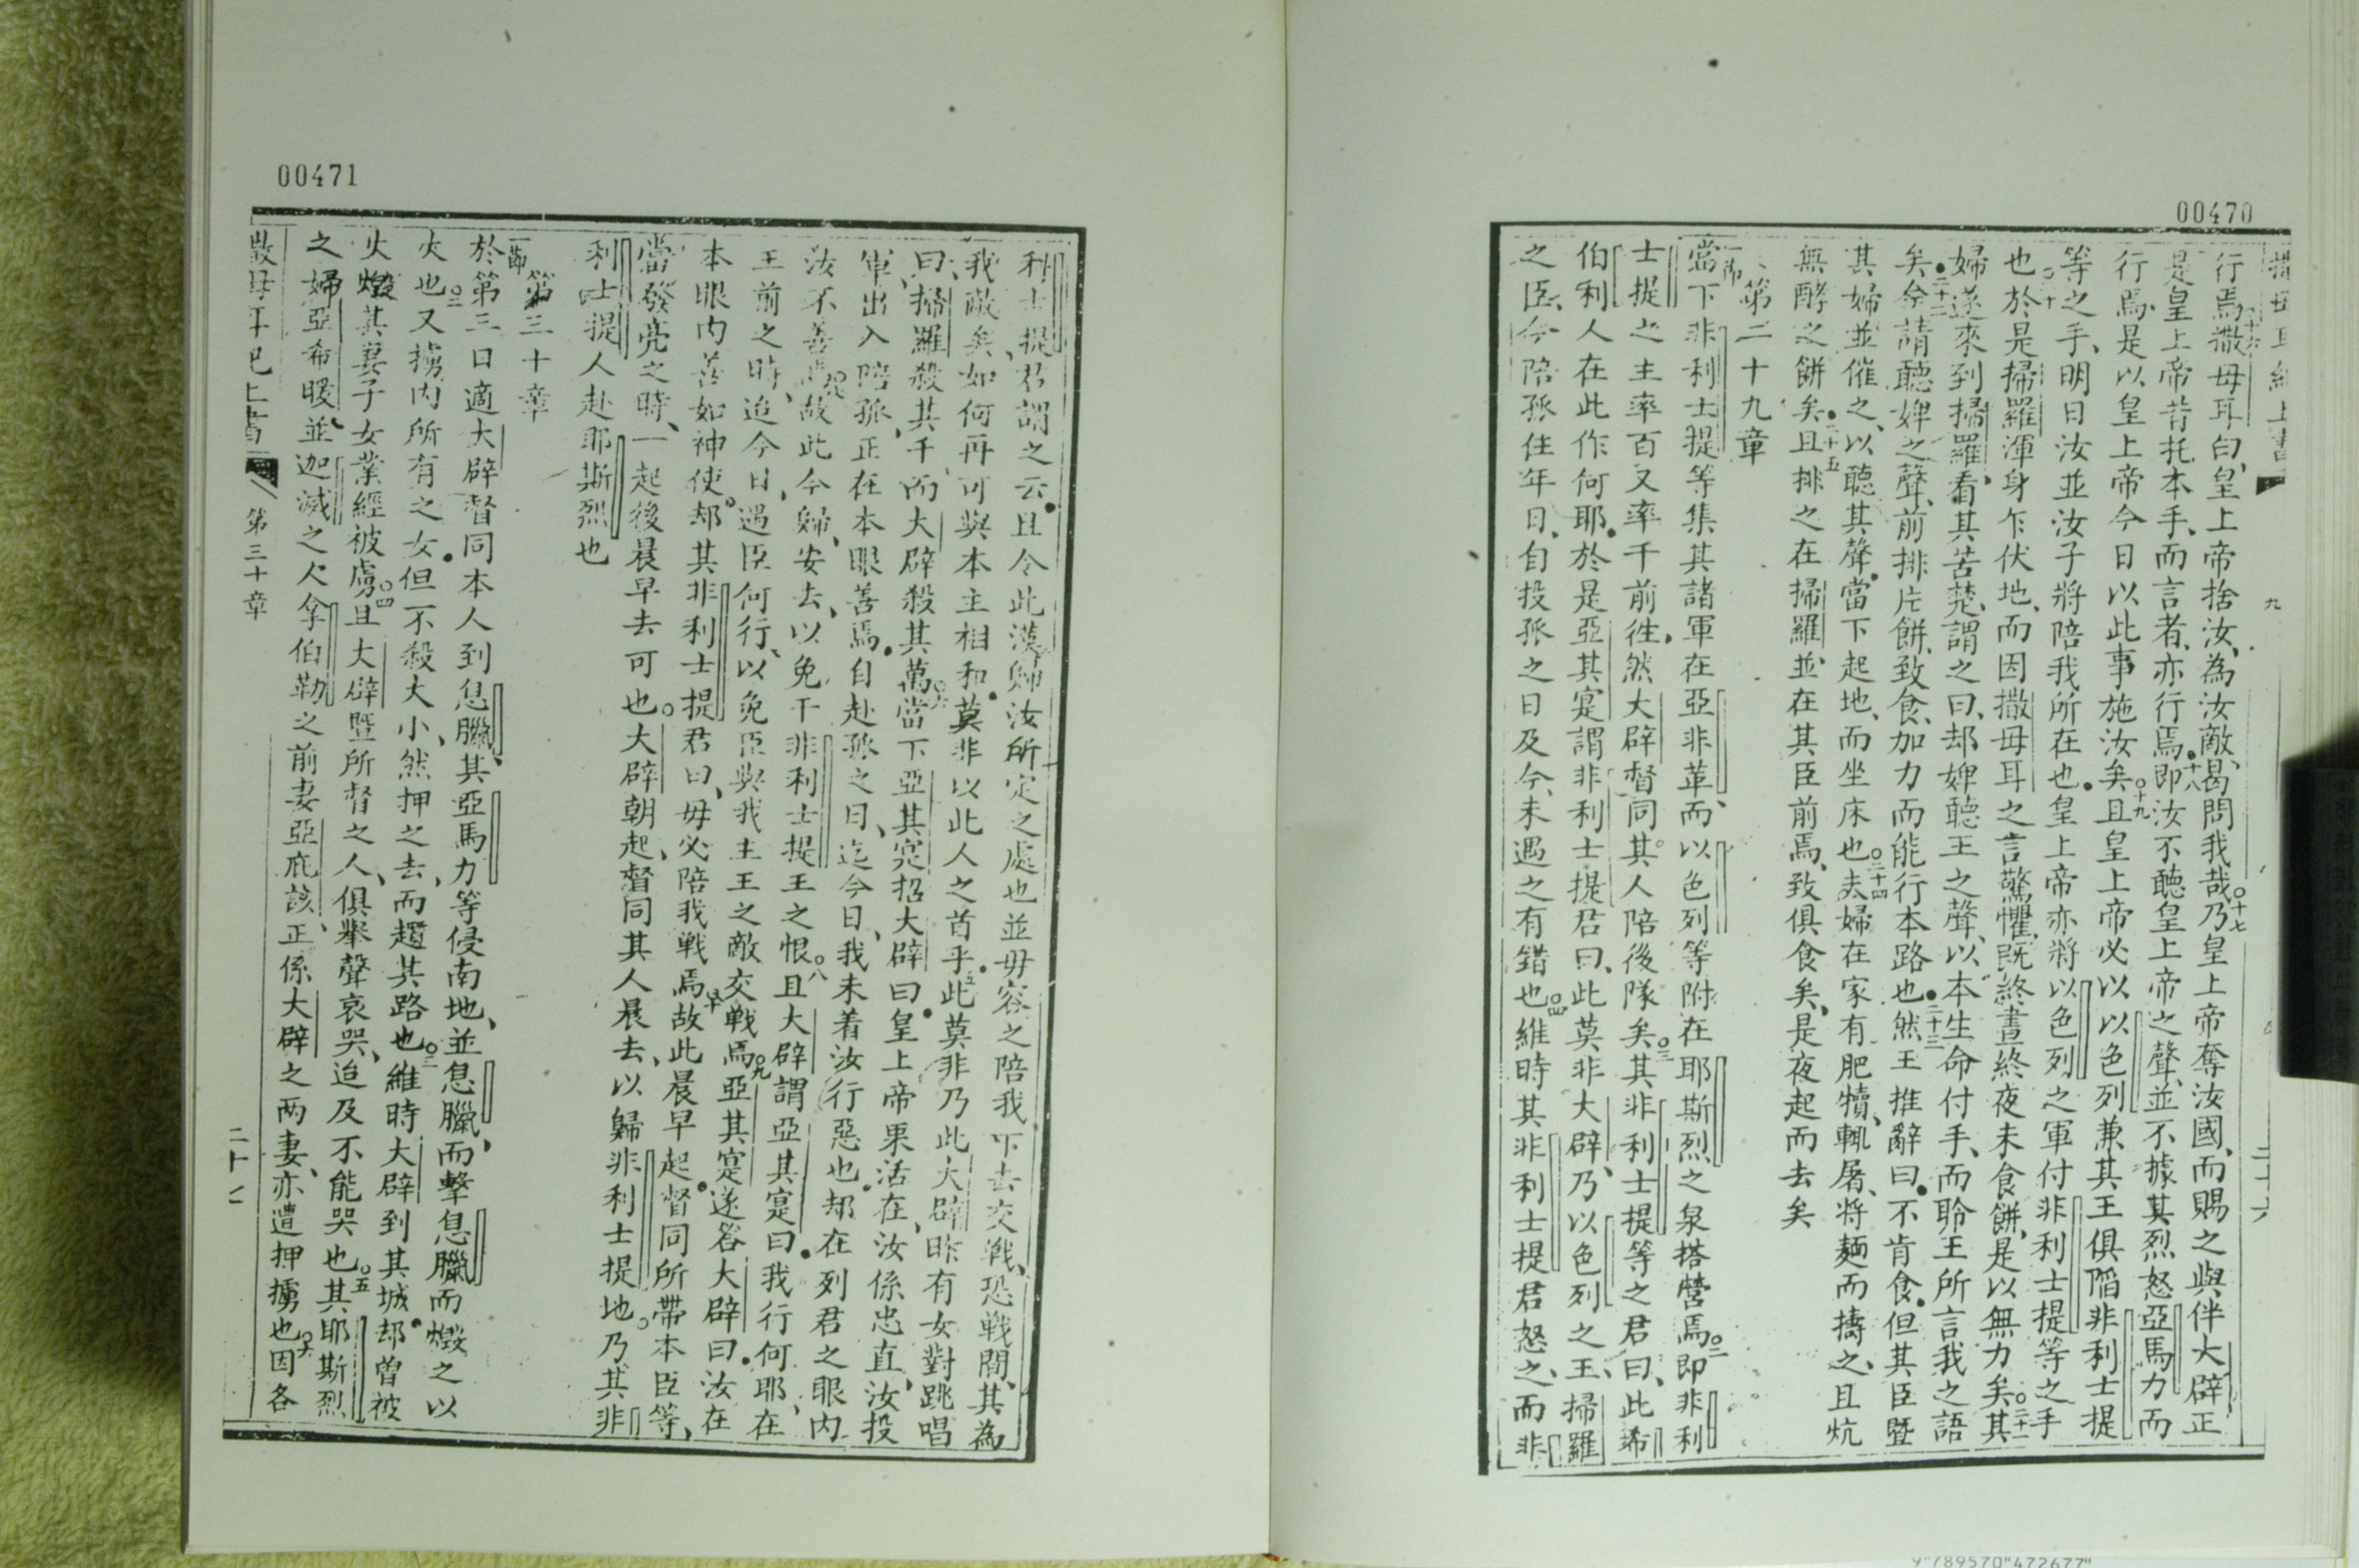 00470
行焉○十六撒母耳曰、皇上帝捨汝、為汝敵、曷問我哉○十七乃皇上帝奪汝國、而賜之與伴大辟正
是皇上帝昔托本手、而言者、亦行焉●十八即汝不聽皇上帝之聲、並不據其烈怒亞馬力而
行焉、是以皇上帝今日以此事施汝矣○十九且皇上帝必以以色列兼其王俱陷非利士提
等之手、明日汝並汝子將陪我所在也●皇上帝亦將以色列之軍付非利士提等之手
也○二十於是掃羅渾身乍伏地、而因撒母耳之言驚懼、既終晝終夜未食餅、是以無力矣○二十一其
婦遂來到掃羅、看其苦楚、謂之曰、却婢聽王之聲、以本生命付手、而聆王所言我之語
矣●二十二今請聽婢之聲、前排片餅、致食、加力而能行本路也●二十三然王推辭曰●不肯食●但其臣暨
其婦並催之、以聽其聲●當下起地、而坐床也○二十四夫婦在家有肥犢、輒屠、將麵而擣之、且炕
無酵之餅矣●二十五且排之在掃羅、並在其臣前焉、致俱食矣、是夜起而去矣
第二十九章
一節當下非利士提等集其諸軍在亞非革、而以色列等附在耶斯烈之泉搭營焉○二即非利
士提之主率百又率千前徃●然大辟督同其人陪後隊矣○三其非利士提等之君曰、此希
伯利人在此作何耶●於是亞其寔謂非利士提君曰、此莫非大辟、乃以色列之王、掃羅
之臣、今陪孤住年日、自投孤之日及今、未遇之有錯也○四維時其非利士提君怒之、而非
00471
利士提、君謂之云●且令此漢歸汝所定之處也、並毋容之陪我下去交戰、恐戰鬪、其為
我敵矣、如何再可與本主相和●莫非以此人之首乎●五此莫非乃此大辟昨有女對跳唱
曰、掃羅殺其千、而大辟殺其萬○六當下亞其寔招大辟曰●皇上帝果活在、汝係忠直、汝投
軍出入陪孤、正在本眼善焉●自赴孤之日、迄今日、我未着汝行惡也●却在列君之眼内
汝不善焉○七故此今歸、安去、以免干非利士提王之恨○八且大辟謂亞其寔曰●我行何耶、在
王前之時、迨今日、遇臣何行、以免臣與我主王之敵交戰焉○九亞其寔遂答大辟曰●汝在
本眼内善如神使●却其非利士提君曰、毋必陪我戰焉○十故此晨早起●督同所帶本臣等、
當發亮之時、一起後晨早去可也○大辟朝起、督同其人晨去、以歸非利士提地○乃其非
利士提人赴耶斯烈也
第三十章
一節於第三日適大辟督同本人到息臘、其亞馬力等侵南地、並息臘、而擊息臘而燬之以
火也○二又擄内所有之女●但不殺大小、然押之去、而趨其路也○三維時大辟到其城●却曾被
火燬、其妻子女業經被虜○四且大辟暨所督之人、俱舉聲哀哭、迨及不能哭也○五其耶斯烈
之婦亞希暖、並迦滅之人拿伯勒之前妻亞庇該、正係大辟之兩妻、亦遭押擄也○六因各
撒母耳記上書 第三十章
9"789570"472677"